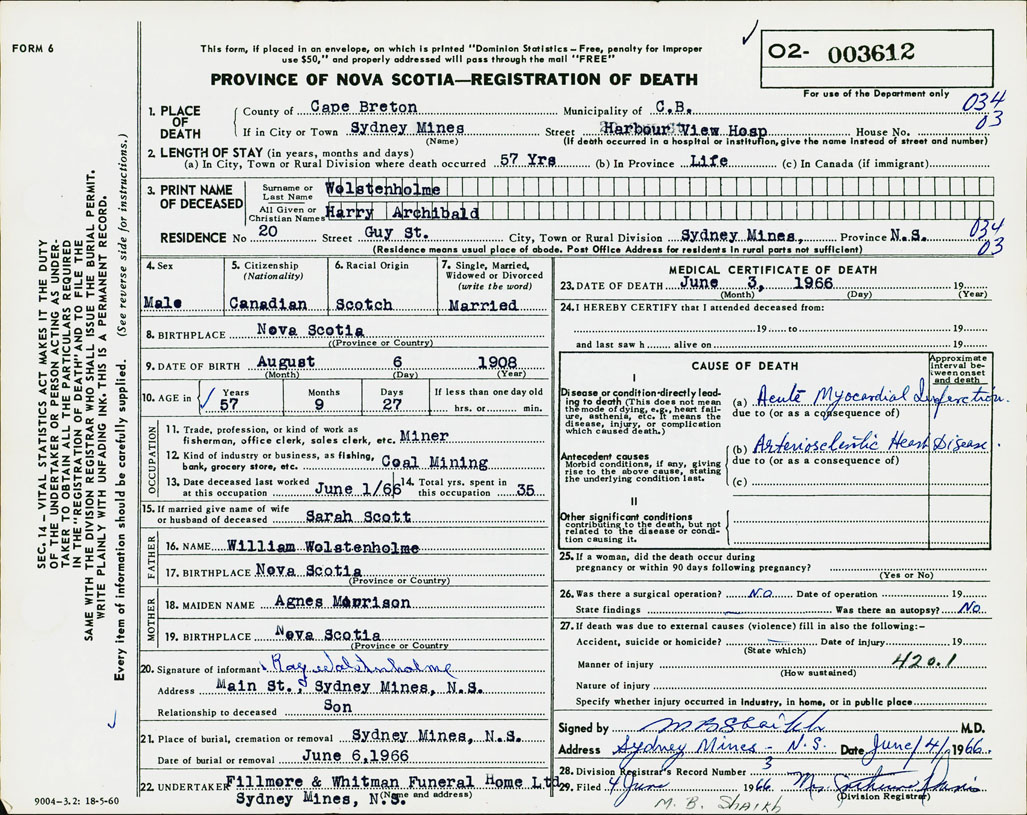 FORM 6
This form, if placed in an envelope, on which is printed "Dominion Statistics—Free, penalty for improper
use $50," and properly addressed will pass through the mail "FREE"
PROVINCE OF NOVA SCOTIA—REGISTRATION OF DEATH
✓
02- 003612
For use of the Department only
034
03
1. PLACE OF DEATH
County of Cape Breton Municipality of C.B.
If in City or Town Sydney Mines Street Harbour View Hosp House No.
(Name) (If death occurred in a hospital or institution, give the name instead of street and number)
2. LENGTH OF STAY (in years, months and days)
(a) In City, Town or Rural Division where death occurred 57 Yrs (b) In Province Life (c) In Canada (if immigrant)
3. PRINT NAME OF DECEASED
Surname or Last Name Wolstenholme
All Given or Christian Names Harry Archibald
RESIDENCE No 20 Street Guy St. City, Town or Rural Division Sydney Mines, Province N.S.
034
03
(Residence means usual place of abode. Post Office Address for residents in rural parts not sufficient)
4. Sex
Male
5. Citizenship
(Nationality)
Canadian
6. Racial Origin
Scotch
7. Single, Married, Widowed or Divorced
(write the word)
Married
8. BIRTHPLACE Nova Scotia
(Province or Country)
9. DATE OF BIRTH August 6 1908
(Month) (Day) (Year)
10. AGE in ✓ Years Months Days If less than one day old
57 9 27 hrs. or min.
OCCUPATION
11. Trade, profession, or kind of work as
fisherman, office clerk, sales clerk, etc. Miner
12. Kind of industry or business, as fishing,
bank, grocery store, etc. Coal Mining
13. Date deceased last worked
at this occupation June 1/66
14. Total yrs. spent in
this occupation 35
15. If married give name of wife
or husband of deceased Sarah Scott
FATHER
16. NAME William Wolstenholme
17. BIRTHPLACE Nova Scotia
(Province or Country)
MOTHER
18. MAIDEN NAME Agnes Morrison
19. BIRTHPLACE Nova Scotia
(Province or Country)
20. Signature of informant Ray Wolstenholme
Address Main St., Sydney Mines, N.S.
Relationship to deceased Son
21. Place of burial, cremation or removal Sydney Mines, N.S.
Date of burial or removal June 6,1966
22. UNDERTAKER Fillmore & Whitman Funeral Home Ltd
Sydney Mines, N.S.
(Name and address)
MEDICAL CERTIFICATE OF DEATH
23. DATE OF DEATH June 3, 1966 19
(Month) (Day) (Year)
24. I HEREBY CERTIFY that I attended deceased from:
19 to 19
and last saw h alive on 19
CAUSE OF DEATH
Approximate interval between onset and death
I
Disease or condition directly leading to death (This does not mean the mode of dying, e.g., heart failure, asthenia, etc. It means the disease, injury, or complication which caused death.)
(a) Acute Myocardial Infarction.
due to (or as a consequence of)
Antecedent causes
Morbid conditions, if any, giving rise to the above cause, stating the underlying condition last.
(b) Arteriosclerotic Heart Disease.
due to (or as a consequence of)
(c)
II
Other significant conditions
contributing to the death, but not related to the disease or condition causing it.
25. If a woman, did the death occur during
pregnancy or within 90 days following pregnancy?
(Yes or No)
26. Was there a surgical operation? NO Date of operation 19
State findings — Was there an autopsy? No
27. If death was due to external causes (violence) fill in also the following:—
Accident, suicide or homicide? — Date of injury 19
(State which)
Manner of injury 420.1
(How sustained)
Nature of injury
Specify whether injury occurred in industry, in home, or in public place
Signed by M B Shaikh M.D.
Address Sydney Mines - N.S. Date June/4/ 1966.
28. Division Registrar's Record Number 3
29. Filed 4 June 1966 Mrs
(Division Registrar)
M. B. SHAIKH
SEC. 14—VITAL STATISTICS ACT MAKES IT THE DUTY
OF THE UNDERTAKER OR PERSON ACTING AS UNDER-
TAKER TO OBTAIN ALL THE PARTICULARS REQUIRED
IN THE "REGISTRATION OF DEATH" AND TO FILE THE
SAME WITH THE DIVISION REGISTRAR WHO SHALL ISSUE THE BURIAL PERMIT.
WRITE PLAINLY WITH UNFADING INK. THIS IS A PERMANENT RECORD.
Every item of information should be carefully supplied. (See reverse side for instructions.)
✓
9004-3.2: 18-5-60